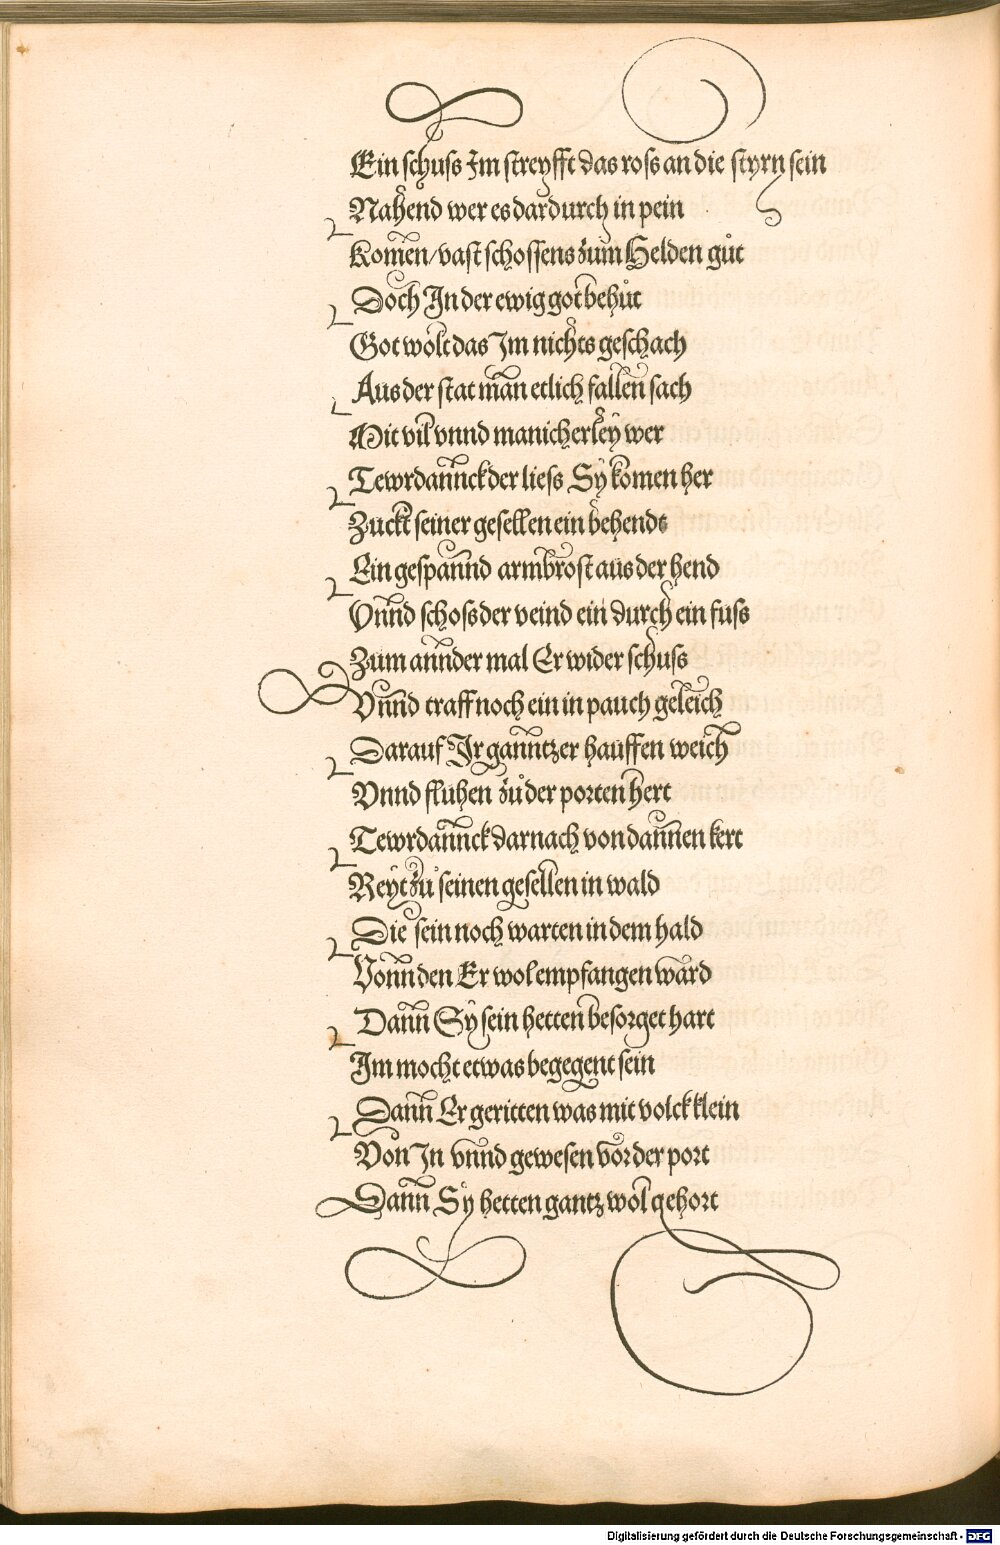 Ein schuss Im streyfft das ross an die styrn sein
Nahend wer es dardurch in pein
Komen/vast schossens zum Helden gůt
Doch In der ewig got behůt
Got wolt das Im nichts geschach
Aus der stat man etlich fallen sach
Mit vil vnnd manicherley wer
Tewrdannck der liess Sy komen her
Zuckt seiner gesellen ein behendt
Ein gespannd armbrost aus der hend
Vnnd schoss der veind ein durch ein fuss
Zum annder mal Er wider schuss
Vnnd traff noch ein in pauch geleich
Darauf Ir ganntzer hauffen weich
Vnnd fluhen zů der porten hert
Tewrdannck darnach von dannen kert
Reyt zů seinen gesellen in wald
Die sein noch warten in dem hald
Vonn den Er wol empfangen ward
Dann Sy sein hetten besorget hart
Im mocht etwas begegent sein
Dann Er geritten was mit volck klein
Von In vnnd gewesen vor der port
Dann Sy hetten gantz wol gehort
Digitalisierung gefördert durch die Deutsche Forschungsgemeinschaft - DFG